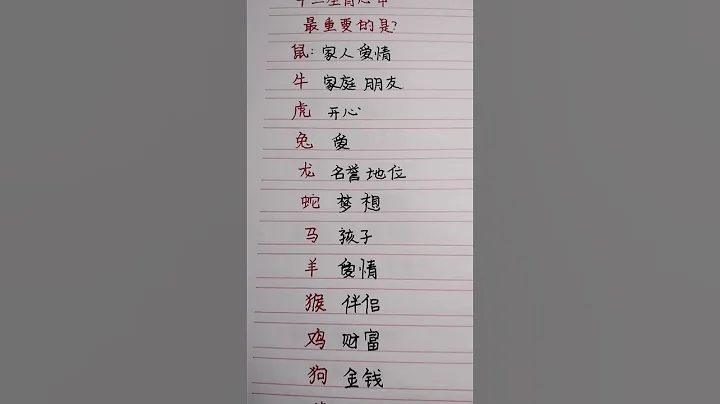 十二生肖心中
最重要的是?
鼠: 家人爱情
牛 家庭 朋友
虎 开心
兔 爱
龙 名誉地位
蛇 梦想
马 孩子
羊 爱情
猴 伴侣
鸡 财富
狗 金钱